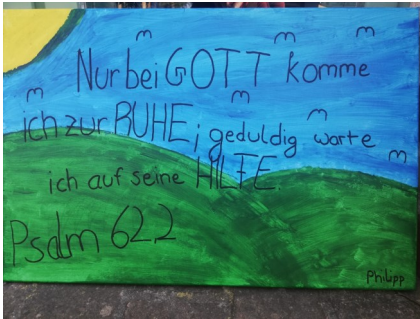 Nur bei GOTT komme
ich zur RUHE; geduldig warte
ich auf seine HILFE.
Psalm 62,2
Philipp